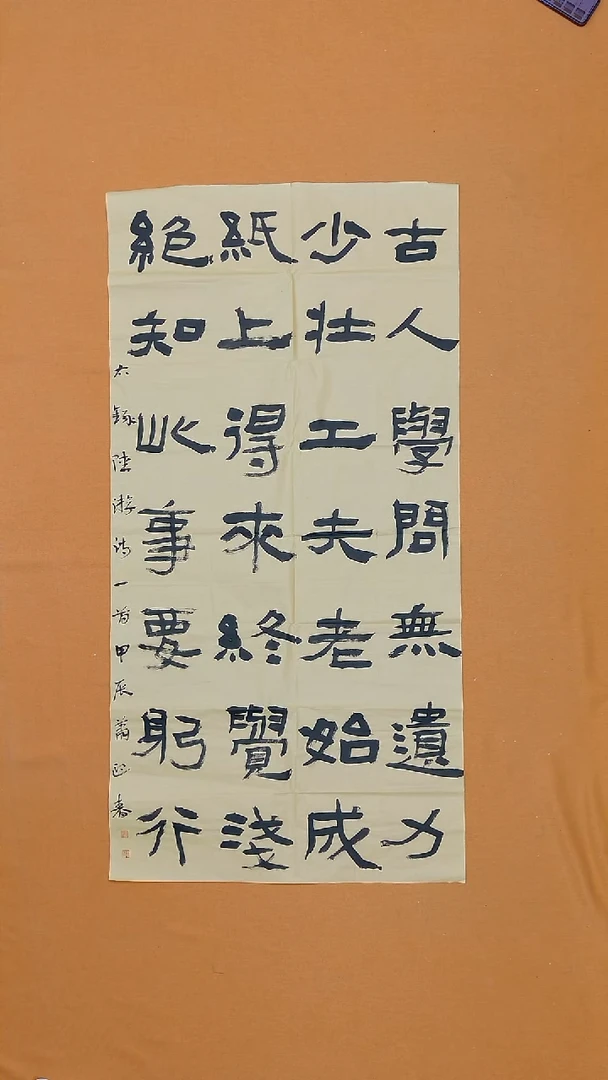 古人學問無遺力
少壯工夫老始成
紙上得來終覺淺
絕知此事要躬行
錄陸游詩一首甲辰蕭
春